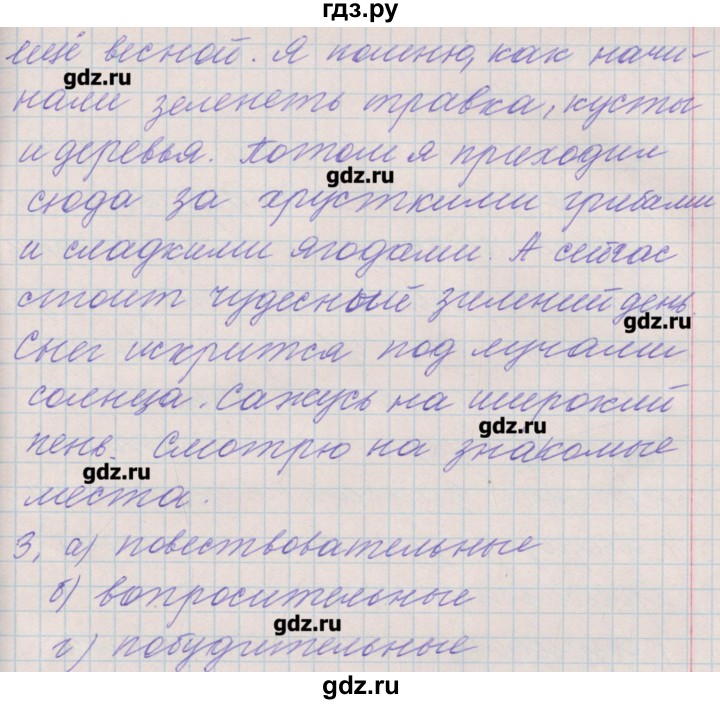 гдз.ру
ещё весной. Я помню, как начи-
gdz.ru
нали зеленеть травка, кусты
и деревья. Потом я приходил
gdz.ru
сюда за хрусткими грибами
и сладкими ягодами. А сейчас
стоит чудесный зимний день.
gdz.ru
Снег искрится под лучами
солнца. Сажусь на широкий
gdz.ru
пень. Смотрю на знакомые
gdz.ru
места.
3. а) повествовательные
б) вопросительные
gdz.ru
г) побудительные
gdz.ru